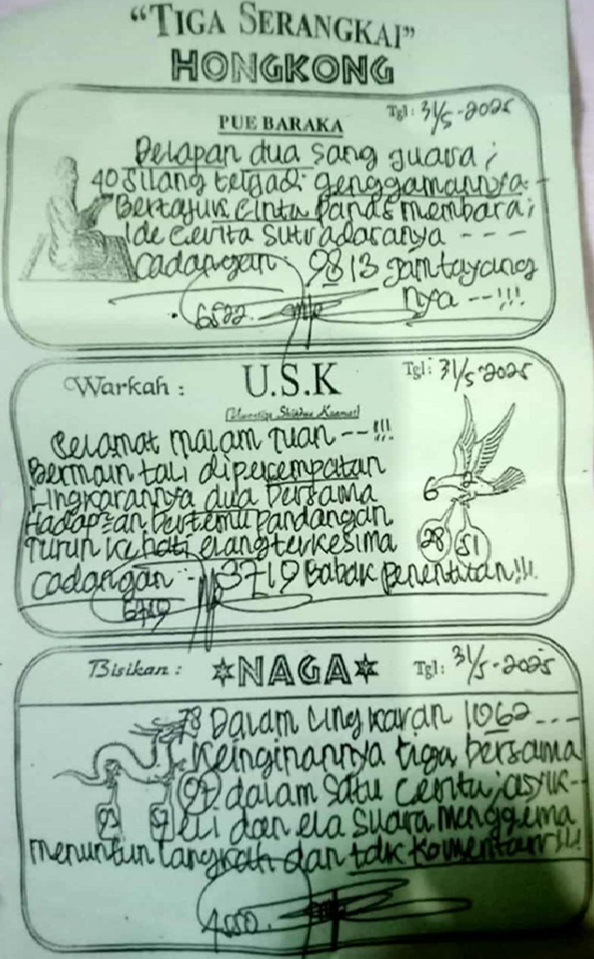 “TIGA SERANGKAI”
HONGKONG
Tgl: 31/5-2025
PUE BARAKA
Delapan dua sang juara;
40 silang terjadi genggamannya-
Bertajuk cinta panas membara;
Ide cerita sutradaranya ---
Cadangan: 9813 jam tayang
nya --!!!
6522
Warkah: U.S.K Tgl: 31/5-2025
Selamat malam Tuan --!!!
Bermain tali diperempatan
Lingkarannya dua bersama
Hadapan bertemu pandangan
Turun ke hati elang terkesima
6 2
28 51
Cadangan - 3719 Babak penentuan!!!
6759
Bisikan: NAGA Tgl: 31/5-2025
78 Dalam lingkaran 1062 ---
Keinginannya tiga bersama
97 dalam satu cerita; asyik--
93 57
eli dan ela suara menggema
menuntun langkah dan tdk komentarr!!!
4550